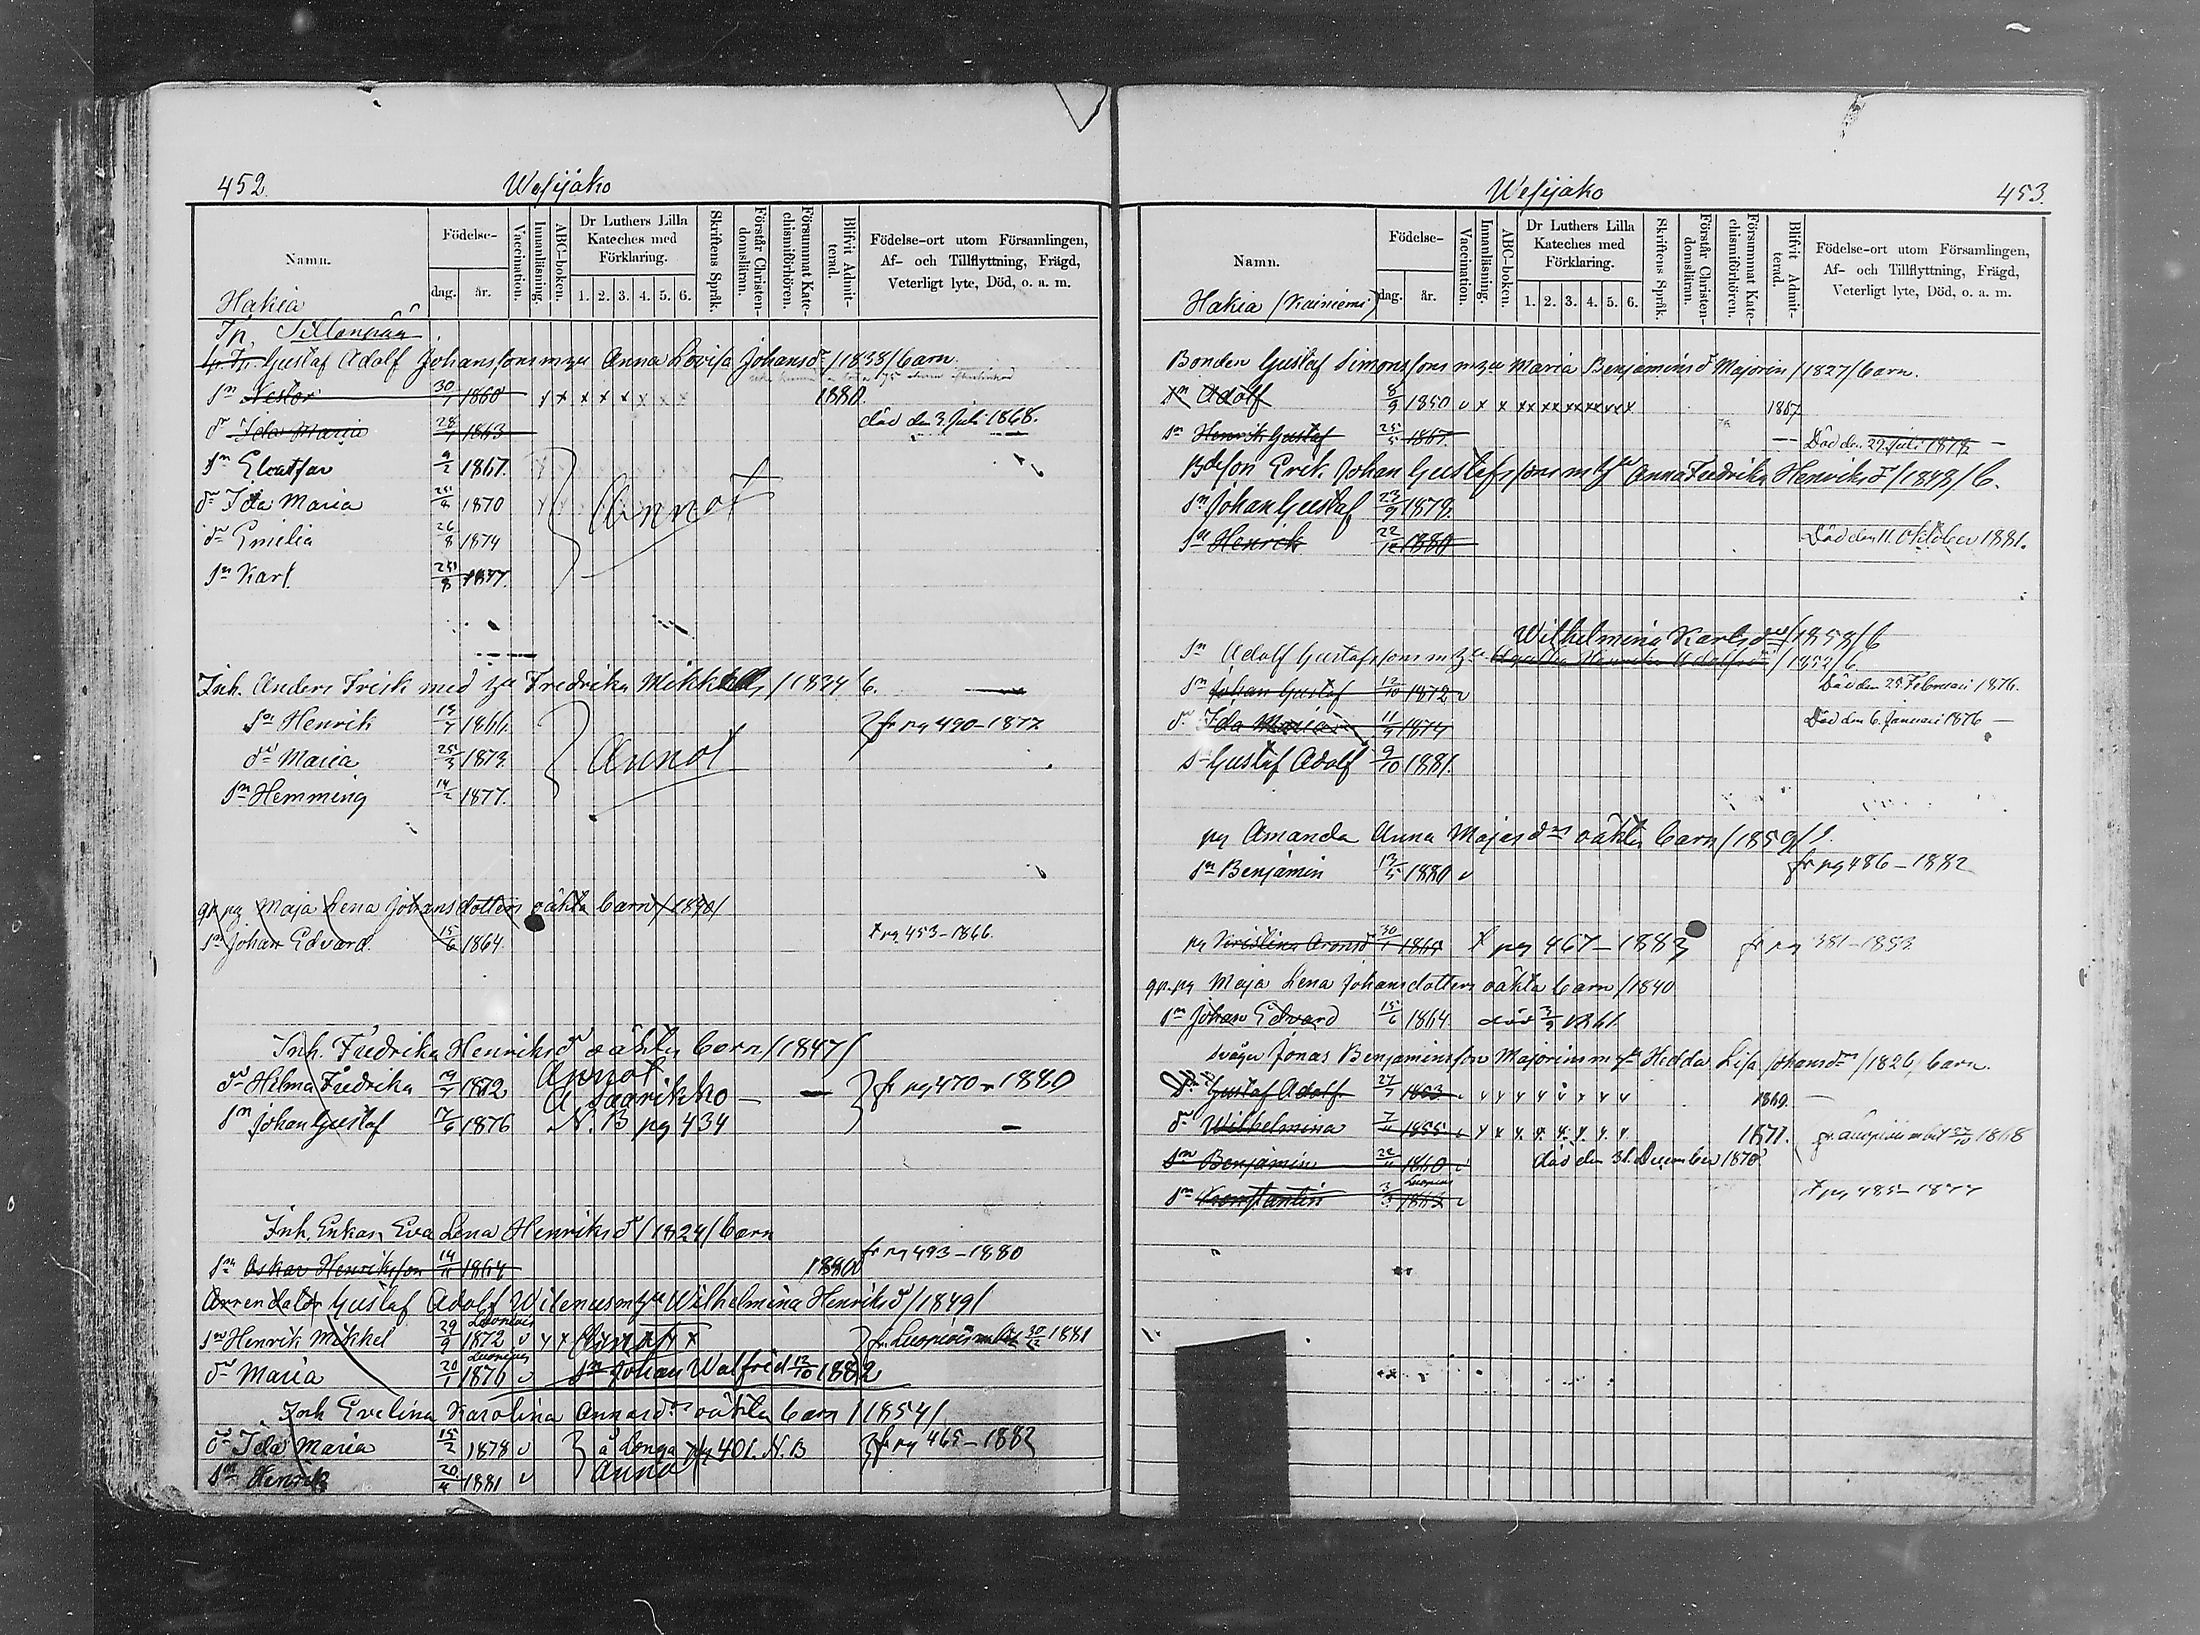 452.
Wesijako
Namn.
Födelse-
dag.
år.
Vaccination.
Innanläsning.
ABC-boken.
Dr Luthers Lilla
Kateches med
Förklaring.
1. 2. 3. 4. 5. 6.
Skriftens Språk.
Förstår Christen-
domsläran.
Försummat Kate-
chismiförhören.
Blifvit Admit-
terad.
Födelse-ort utom Församlingen,
Af- och Tillflyttning, Frägd,
Veterligt lyte, Död, o. a. m.
Hakia
Tp. Sillanpää
Gustaf Adolf Johanssons m hu Anna Lovisa Johansdr /1838/ barn.
sn Nestor 30/7 1860 1880.
dr Ida Maria 28/7 1863 död den 3 Juli 1868.
sn Eleatsar 9/2 1867.
dr Ida Maria 1870 Annot
dr Emilia 26/8 1874
sn Karl 25/8 1877.
Inh. Anders Frisk med hu Fredrika /1834 b.
sn Henrik 1866. fr pg 490-1877
dr Maria 25/3 1873. Annot
sn Hemming 14/2 1877.
gp pg Maja Lena Johansdotters oäkta barn /1840/
sn Johan Edvard. 15/6 1864. t pg 453-1866.
Inh. Fredrika Henriksdr oäkta barn /1847/
dr Helma Fredrika 1872 Annot
a Saarikko fr pg 470-1880
sn Johan Gustaf 17/6 1876 N.B pg 434
Inh. Enkan Eva Lena Henriksdr /1824/ barn
sn Oskar Henriksson 14/11 1864 1880 fr pg 493-1880
Arrendatr Gustaf Adolf Witenius m hu Wilhelmina Henriksdr /1849/
sn Henrik Mikkel 29/9 1872 Annot fr. Kuopio 1881
dr Maria 20/1 1876 sn Johan Walfrid 12/10 1882
Inh Evelina Karolina Annasdrs oäkta barn /1854/
dr Ida Maria 15/2 1878 pg 401. N.B fr pg 465-1882
sn Henrik 20/4 1881 Annot
453.
Wesijako
Namn.
Födelse-
dag.
år.
Vaccination.
Innanläsning.
ABC-boken.
Dr Luthers Lilla
Kateches med
Förklaring.
1. 2. 3. 4. 5. 6.
Skriftens Språk.
Förstår Christen-
domsläran.
Försummat Kate-
chismiförhören.
Blifvit Admit-
terad.
Födelse-ort utom Församlingen,
Af- och Tillflyttning, Frägd,
Veterligt lyte, Död, o. a. m.
Hakia (Kainiemi)
Bonden Gustaf Simonssons m hu Maria Benjaminsdr Majorin /1827/ barn.
sn Adolf 8/9 1850 1867
sn Henrik Gustaf 25/5 1867. Död den 29 Juli 1878
Bdeson Erik Johan Gustafssons m hu Anna Fredrika Henriksdr /1848/ b.
sn Johan Gustaf 23/9 1879.
sn Henrik 22/12 1880 Död den 11 Oktober 1881.
Wilhelmina Karlsdr /1859/ b
sn Adolf Gustafssons m hu Agatha Henrika Adolfsdr /1852/ b
sn Johan Gustaf 12/10 1872 Död den 25 Februari 1876.
dr Ida Maria 1874 Död den 6 Januari 1876
sn Gustaf Adolf 9/10 1881.
pg Amanda Anna Majasdrs oäkta barn /1859/
sn Benjamin 13/5 1880 fr pg 486-1882
pg Kristina Aronsdr 30/1 1865 t pg 467-1883 fr pg 381-1883
gp. pg Maja Lena Johansdotters oäkta barn /1840
sn Johan Edvard 15/6 1864 död
svåger Jonas Benjaminsson Majorins m hu Hedda Lisa Johansdr /1826/ barn.
Gustaf Adolf 27/7 1853 1869.
dr Wilhelmina 1855 1871.
sn Benjamin 1860 död den 31 December 1870
sn Konstantin 1862 t pg 485-1877